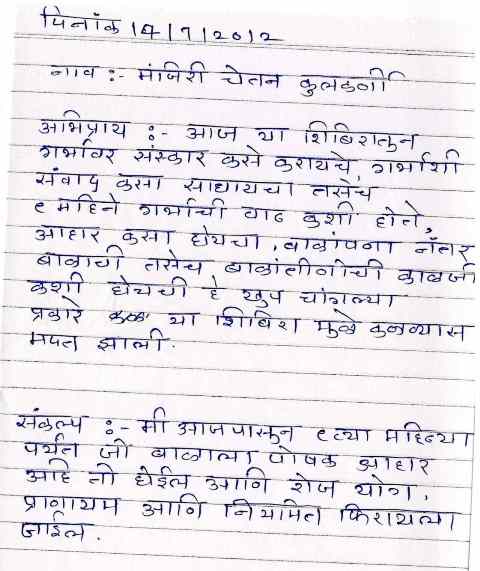 दिनांक 14/7/2012
नाव :- मंजिरी चेतन कुलकर्णी
अभिप्राय :- आज या शिबिरातून
गर्भावर संस्कार कसे करायचे, गर्भाशी
संवाद कसा साधायचा तसेच
९ महिने गर्भाची वाढ कशी होते,
आहार कसा घ्यायचा, बाळांपना नंतर
बाळाची तसेच बाळांतीणीची काळजी
कशी घ्यायची हे खुप चांगल्या
प्रकारे या शिबिरा मुळे कळण्यास
मदत झाली.
संकल्प :- मी आजपासून ९व्या महिन्या
पर्यंत जो बाळाला पोषक आहार
आहे तो घेईल आणि रोज योग,
प्राणायम आणि नियमित फिरायला
जाईल.